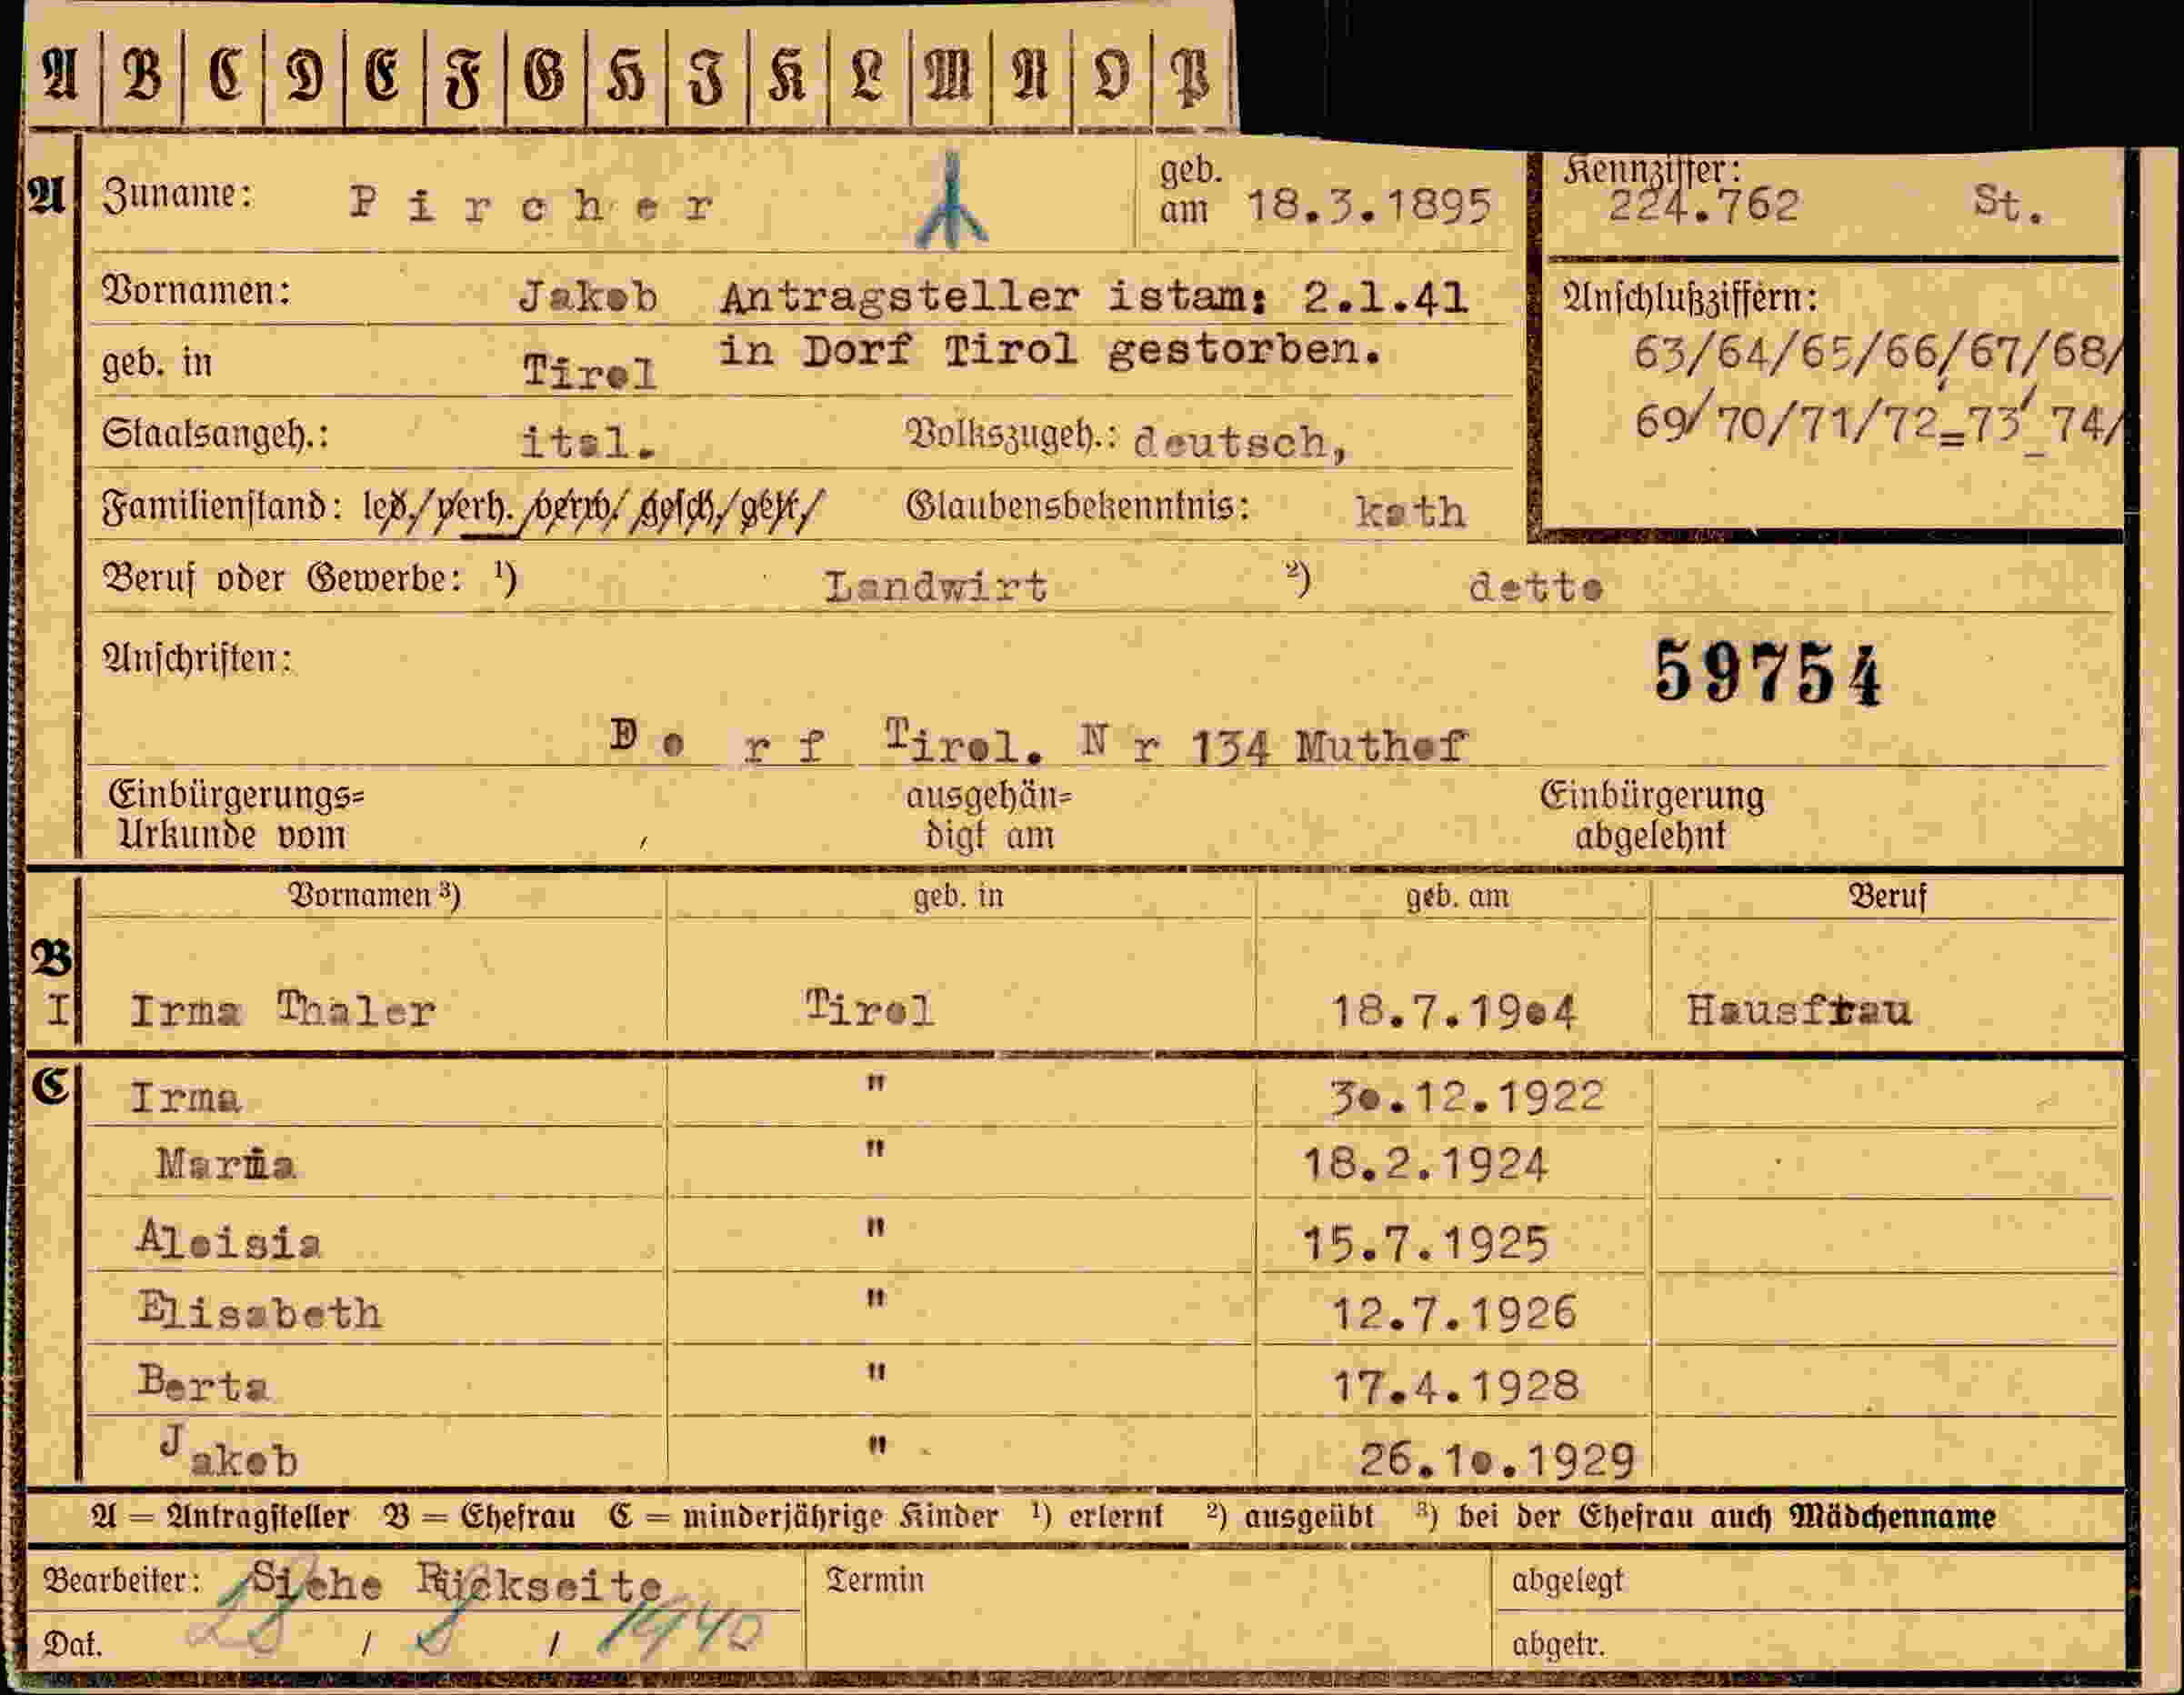 A B C D E F G H I K L M N O P
A Zuname: Pircher geb. am 18.3.1895 Kennziffer: 224.762 St.
Vornamen: Jakob Antragsteller istam: 2.1.41 Anschlußziffern:
geb. in Tirol in Dorf Tirol gestorben. 63/64/65/66/67/68/
Staatsangeh.: ital. Volkszugeh.: deutsch, 69/70/71/72=73_74/
Familienstand: led./verh./verw./gesch./getr./ Glaubensbekenntnis: kath
Beruf oder Gewerbe: 1) Landwirt 2) detto
Anschriften: 59754
Dorf Tirol. Nr 134 Muthof
Einbürgerungs= ausgehän= Einbürgerung
Urkunde vom digt am abgelehnt
Vornamen 3) geb. in geb. am Beruf
B
I Irma Thaler Tirol 18.7.1904 Hausfrau
C Irma " 30.12.1922
Maria " 18.2.1924
Aloisia " 15.7.1925
Elisabeth " 12.7.1926
Berta " 17.4.1928
Jakob " 26.10.1929
A = Antragsteller B = Ehefrau C = minderjährige Kinder 1) erlernt 2) ausgeübt 3) bei der Ehefrau auch Mädchenname
Bearbeiter: Siehe Rückseite Termin abgelegt
Dat. 28 / 8 / 1940 abgetr.